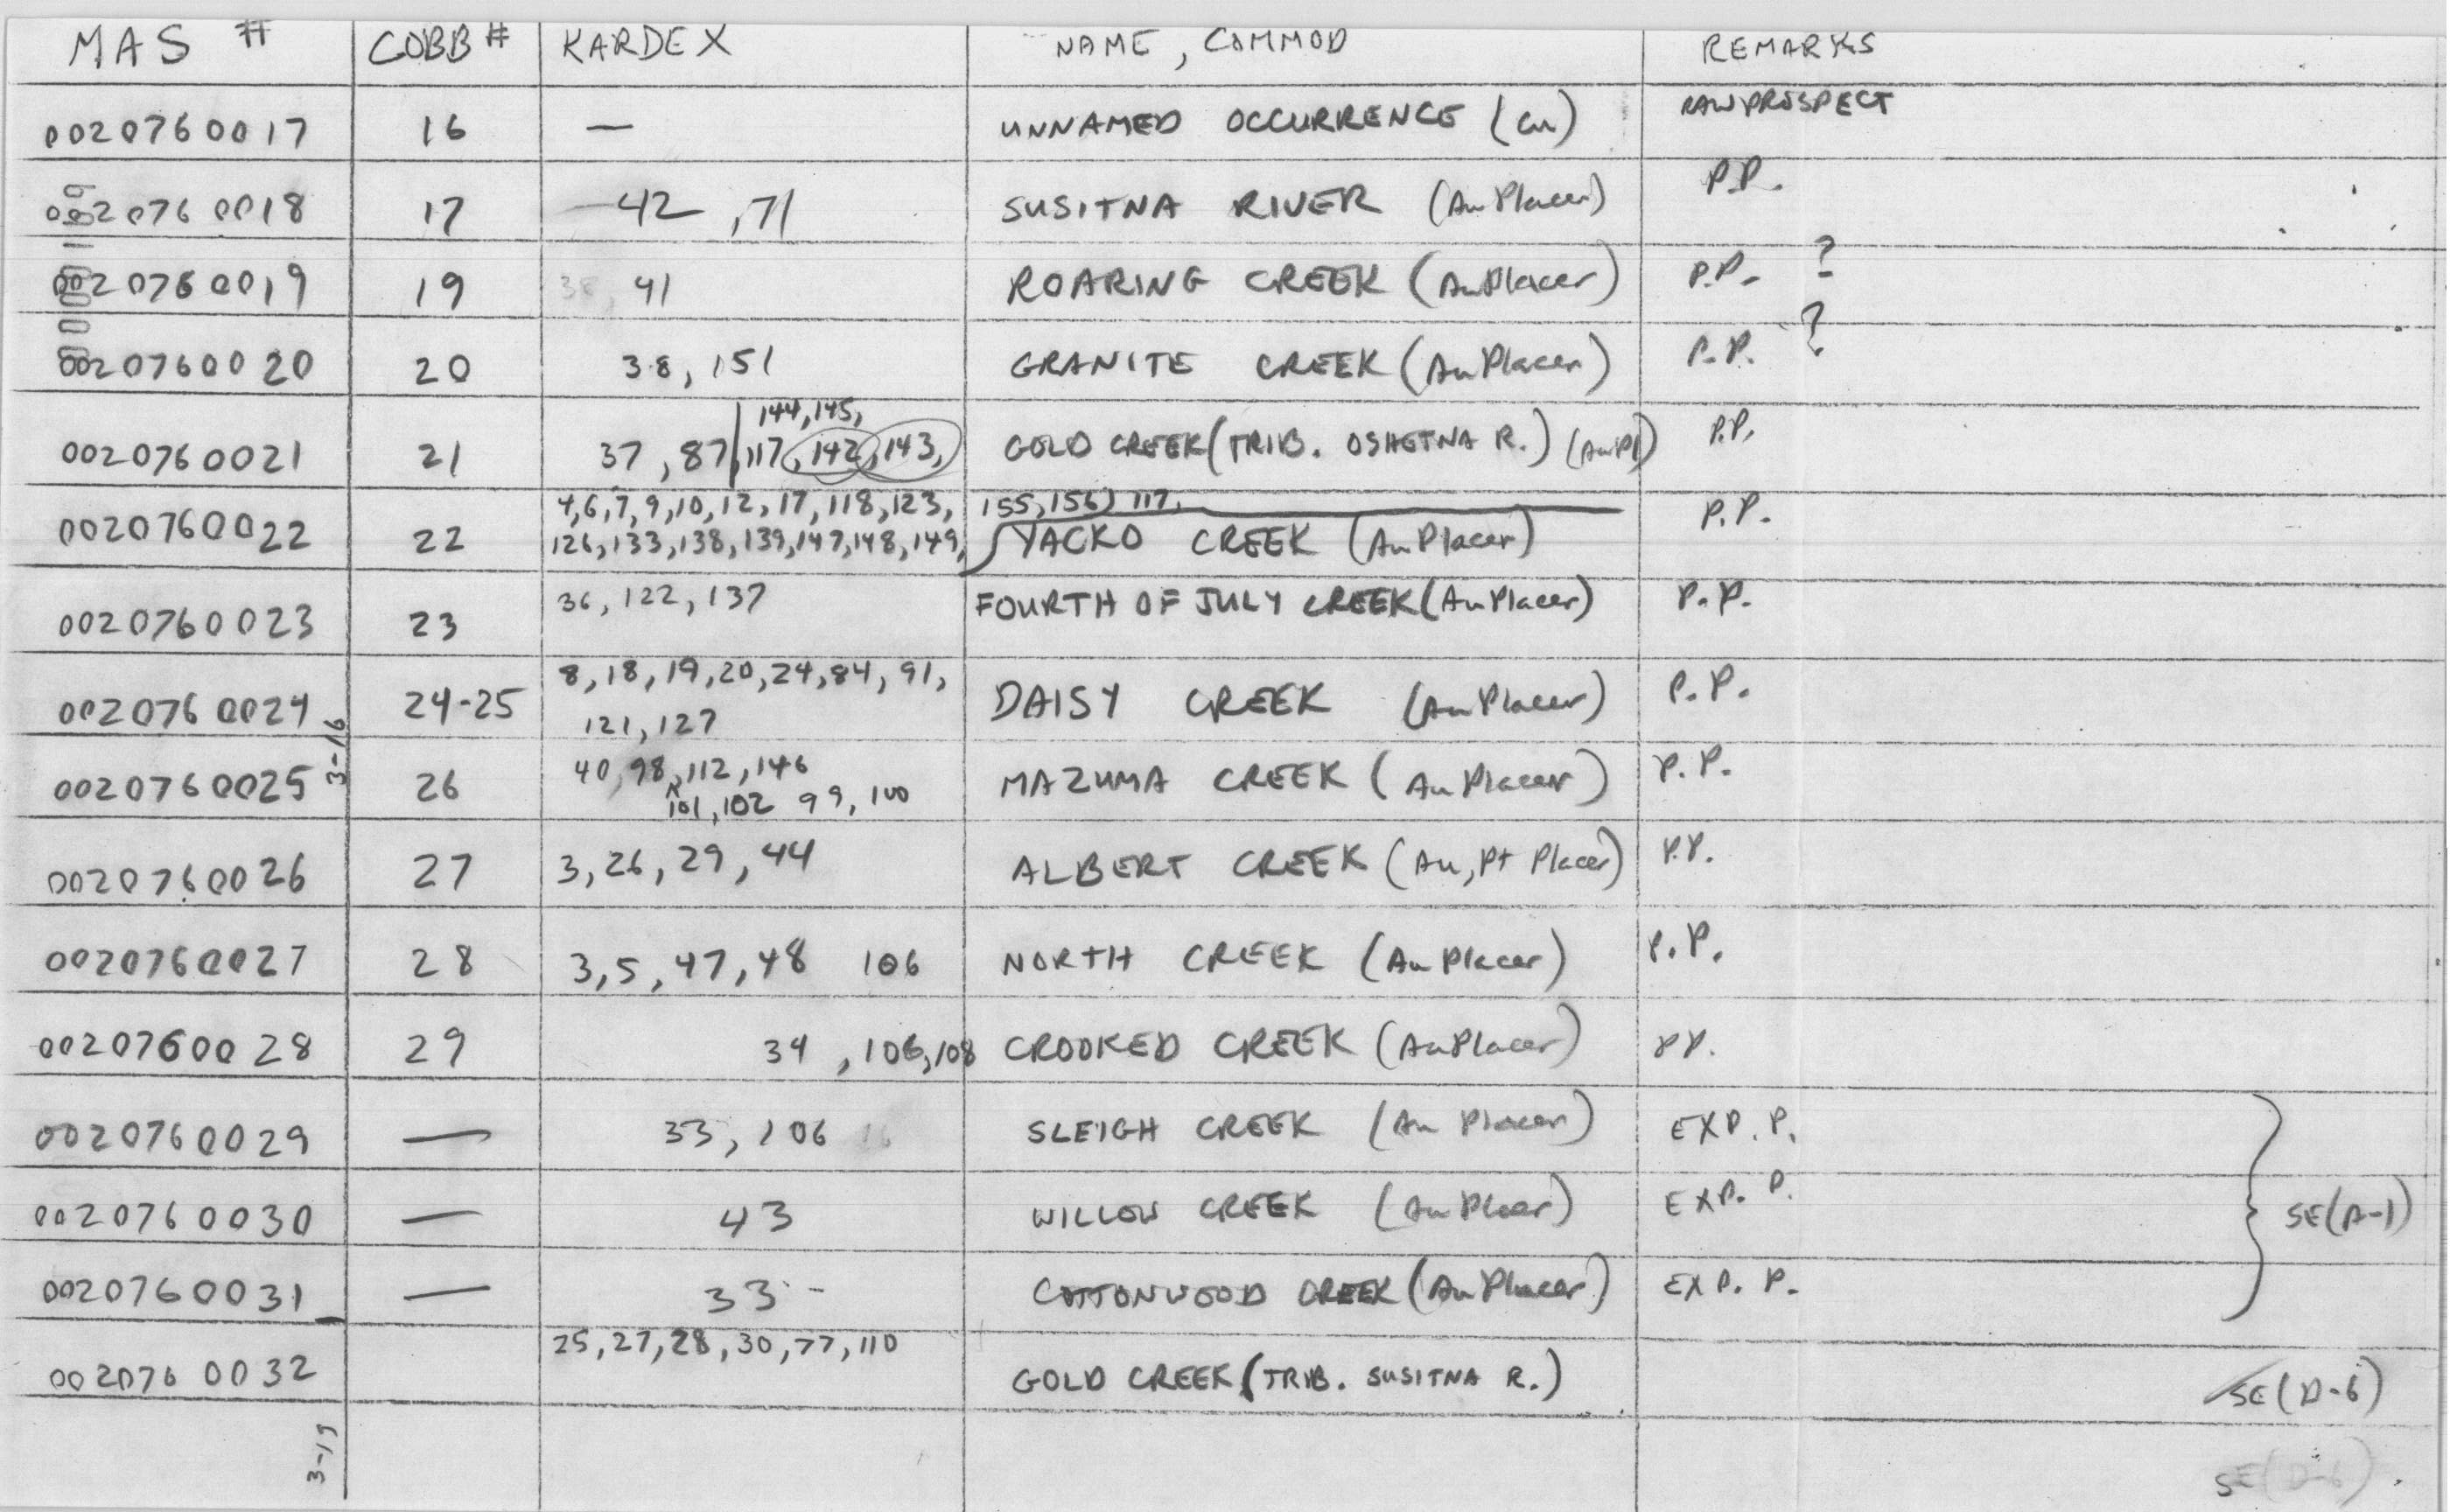 MAS # COBB # KARDEX NAME, COMMOD REMARKS
0020760017 16 — UNNAMED OCCURRENCE (Cu) RAW PROSPECT
0020760018 17 42, 71 SUSITNA RIVER (Au Placer) P.P.
0020760019 19 38, 41 ROARING CREEK (Au Placer) P.P. ?
0020760020 20 38, 151 GRANITE CREEK (Au Placer) P.P. ?
144, 145,
0020760021 21 37, 87, 117, 142, 143, GOLD CREEK (TRIB. OSHETNA R.) (Au Pl) P.P.
4, 6, 7, 9, 10, 12, 17, 118, 123, 155, 156, 117.
0020760022 22 126, 133, 138, 139, 147, 148, 149, YACKO CREEK (Au Placer) P.P.
0020760023 23 36, 122, 137 FOURTH OF JULY CREEK (Au Placer) P.P.
8, 18, 19, 20, 24, 84, 91,
0020760024 24-25 121, 127 DAISY CREEK (Au Placer) P.P.
3-16
0020760025 26 40, 98, 112, 146 MAZUMA CREEK (Au Placer) P.P.
101, 102 99, 100
0020760026 27 3, 26, 29, 44 ALBERT CREEK (Au, Pt Placer) P.P.
0020760027 28 3, 5, 47, 48 106 NORTH CREEK (Au Placer) P.P.
0020760028 29 34, 106, 108 CROOKED CREEK (Au Placer) P.P.
0020760029 — 33, 106 SLEIGH CREEK (Au Placer) EXP. P.
0020760030 — 43 WILLOW CREEK (Au Placer) EXP. P. SE(A-1)
0020760031 — 33 - COTTONWOOD CREEK (Au Placer) EXP. P.
25, 27, 28, 30, 77, 110
0020760032 GOLD CREEK (TRIB. SUSITNA R.) SE(D-6)
3-19 SE(D-6)